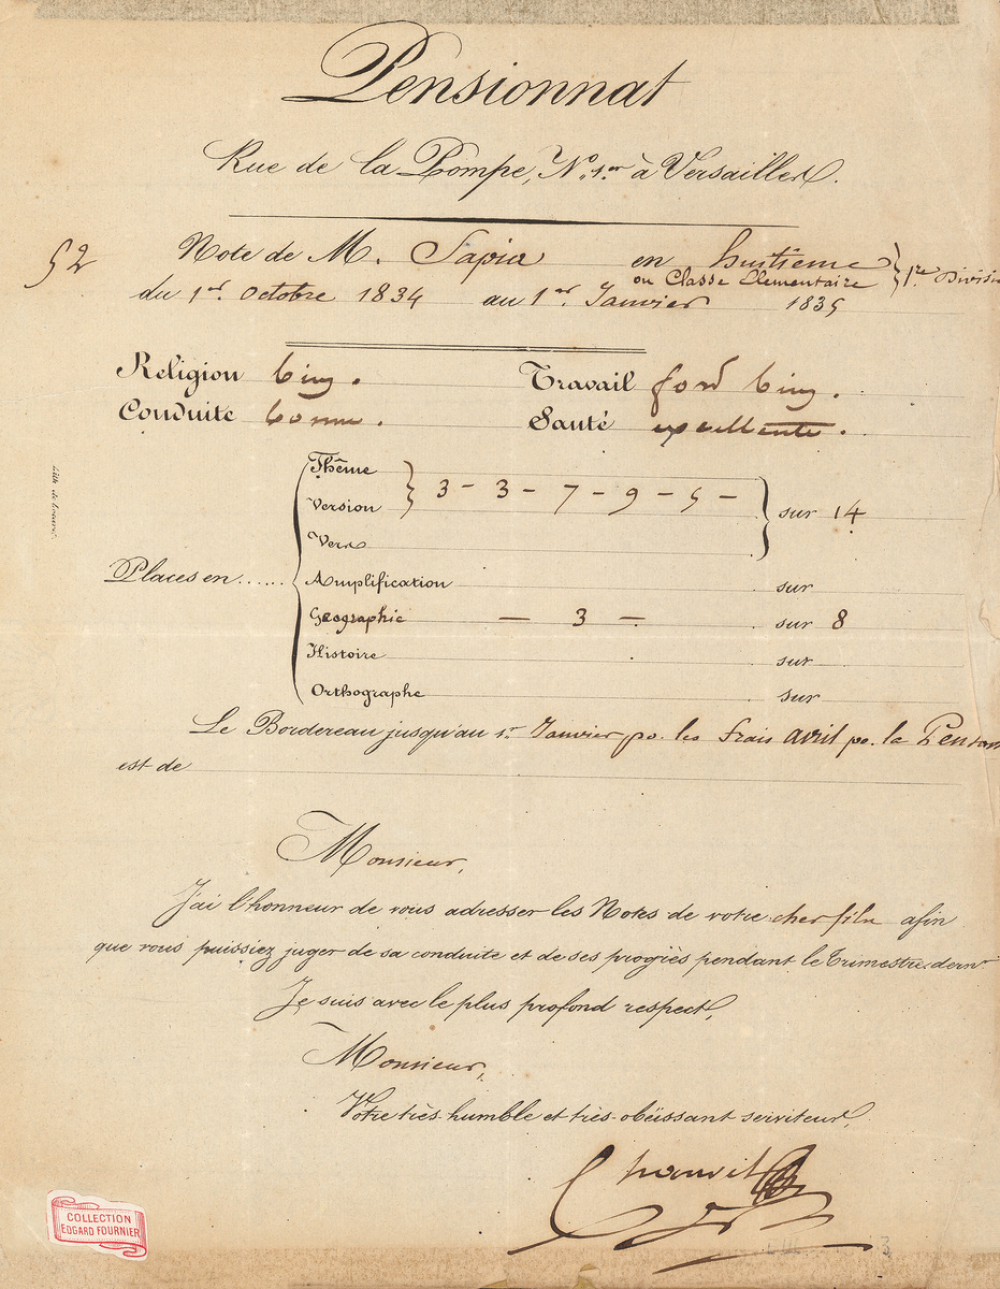 Pensionnat
Rue de la Pompe, N.º 1.er à Versailles.
52
Note de M. Sapia en huitieme
ou Classe Elementaire } 1re Divisi
du 1er Octobre 1834 au 1er Janvier 1835
Religion bien. Travail fort bien.
Conduite bonne. Santé excellente.
Thême
Version } 3 - 3 - 7 - 9 - 5 - } sur 14
Vers
Places en ......
Amplification sur
Geographie - 3 - sur 8
Histoire sur
Orthographe sur
Le Bordereau jusqu'au 1er Janvier po. les frais avril po. la Pension
est de
Monsieur,
J'ai l'honneur de vous adresser les Notes de votre cher fils afin
que vous puissiez juger de sa conduite et de ses progrès pendant le Trimestre dern.r
Je suis avec le plus profond respect,
Monsieur,
Votre très-humble et très-obéissant serviteur,
COLLECTION
EDGARD FOURNIER